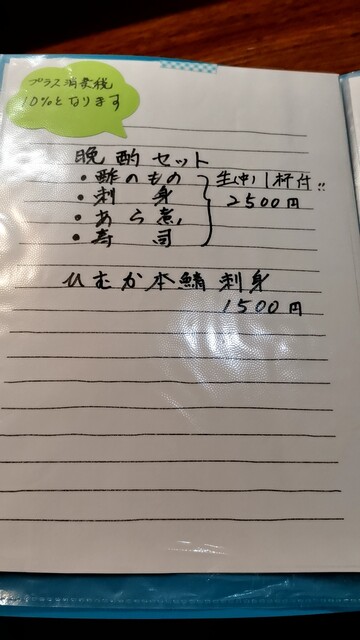 プラス消費税
10%となります
晩酌セット
・酢のもの
・刺身
・あら煮
・寿司
生(中)1杯付!!
2500円
ひむか本鯖刺身
1500円